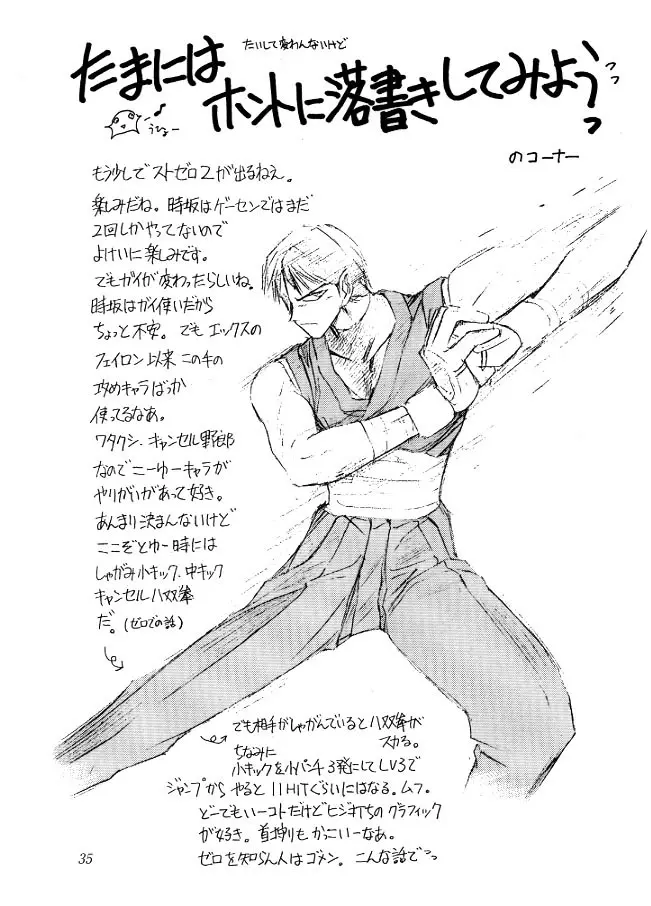 たいして変わんないけど
たまには
ホントに落書きしてみようっっ
うひょー
のコーナー
もう少しでストゼロ2が出るねえ。
楽しみだね。時坂はゲーセンではまだ
2回しかやってないので
よけいに楽しみです。
でもガイが変わったらしいね。
時坂はガイ使いだから
ちょっと不安。でもエックスの
フェイロン以来この手の
攻めキャラばっか
使ってるなあ。
ワタクシ、キャンセル野郎
なのでこーゆーキャラが
やりがいがあって好き。
あんまり決まんないけど
ここぞとゆー時には
しゃがみ小キック、中キック
キャンセル八双拳
だ。(ゼロでの話)
でも相手がしゃがんでいると八双拳が
スカる。
ちなみに
小キックを小パンチ3発にしてLV3で
ジャンプからやると11HITくらいにはなる。ムフ。
どーでもいーコトだけどヒジ打ちのグラフィック
が好き。首抑りもかっこいーなあ。
ゼロを知らん人はゴメン。こんな話でっっ
35